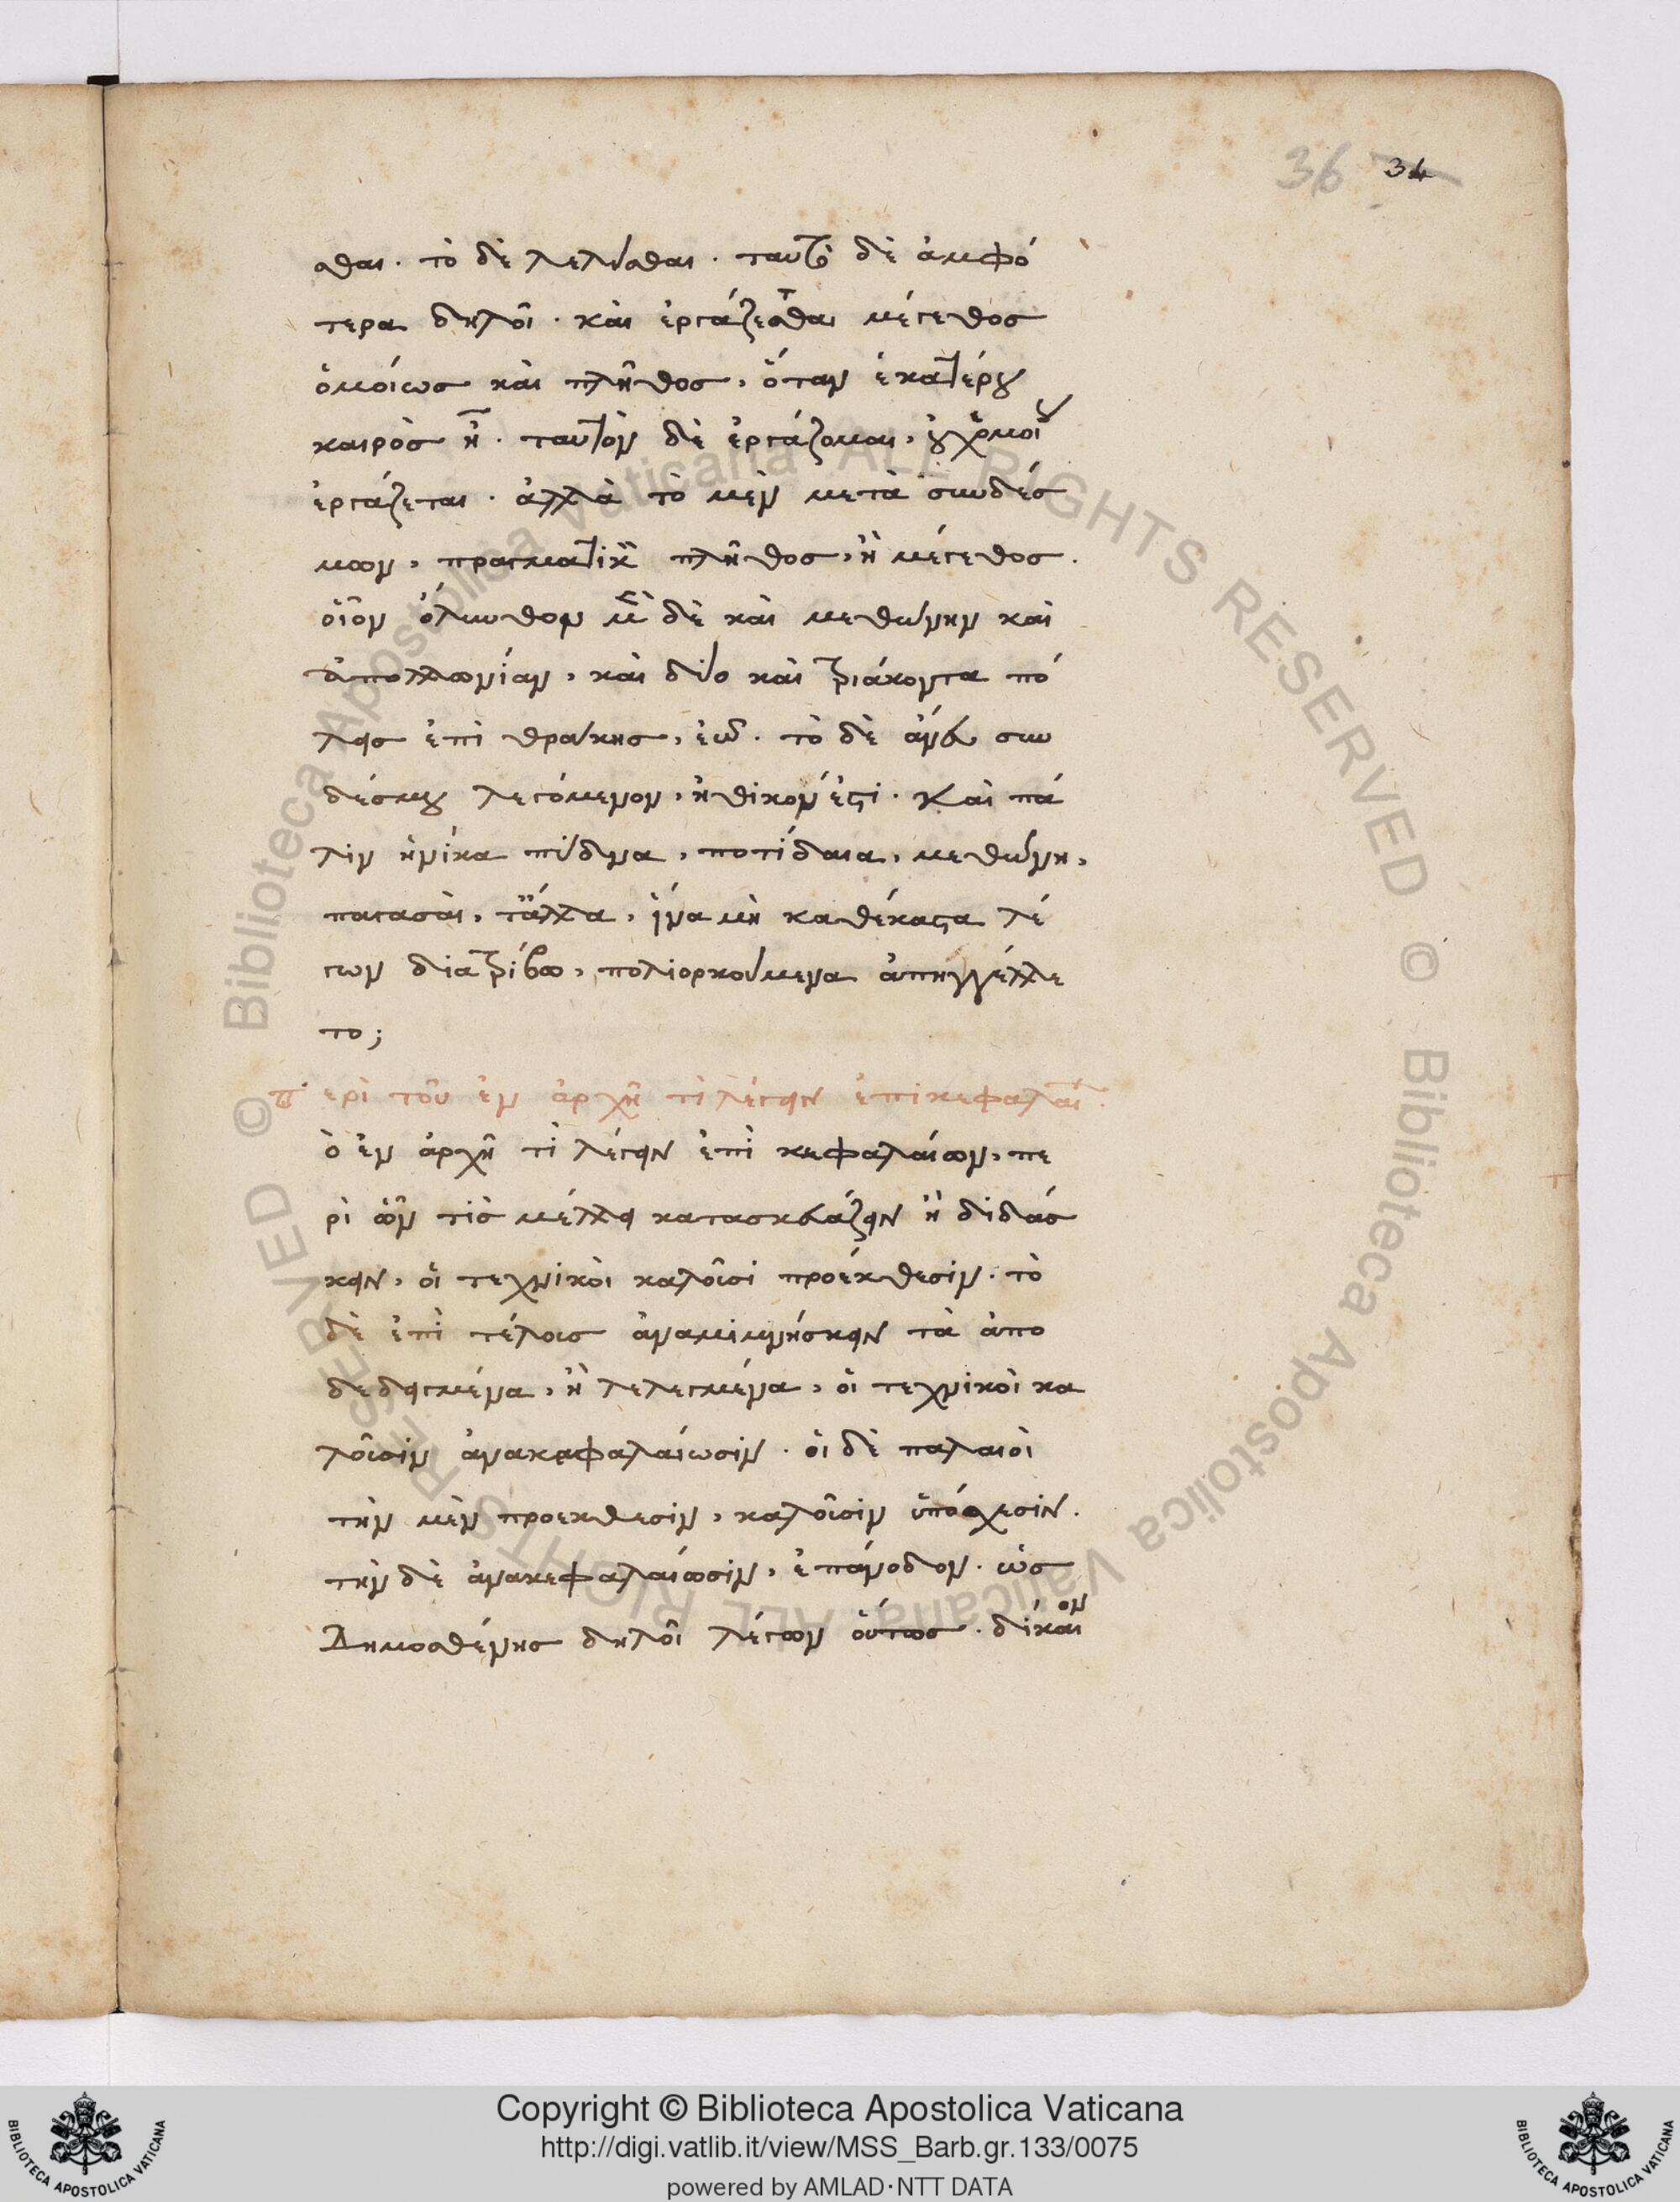 36 34
σθαι. τὸ δὲ λελύσθαι. ταυτὶ δὲ ἀμφό
τερα δηλοῖ. καὶ ἐργάζεσθαι μέγεθος
ὁμοίως καὶ πλῆθος, ὅταν ἑκατέρου
καιρὸς ᾖ. ταυτὸν δὲ ἐργάζομαι, οὐχ ὁμοίου
ἐργάζεται. ἀλλὰ τὸ μὲν μετὰ συνδέσ
μων, πραγματικὸν πλῆθος, ἢ μέγεθος.
οἷον ὄλυνθον μὲν δὲ καὶ μεθώνην καὶ
ἀπολλωνίαν, καὶ δύο καὶ τριάκοντα πό
λεις ἐπὶ θράκης, ἐῶ. τὸ δὲ ἄνευ συν
δέσμου λεγόμενον, ἠθικόν ἐστι. Καὶ πά
λιν ἡνίκα πύδνα, ποτίδαια, μεθώνη,
παγασαὶ, τἄλλα, ἵνα μὴ καθέκαστα λέ
γων διατρίβω, πολιορκούμενα ἀπηγγέλλε
το;
Περὶ τοῦ ἐν ἀρχῆ τὶ λέγειν ἐπικεφαλαί.
ὁ ἐν ἀρχῆ τὶ λέγειν ἐπὶ κεφαλαίων, πε
ρὶ ὧν τὶς μέλλει κατασκευάζειν ἢ διδάσ
κειν, οἱ τεχνικοὶ καλοῦσι προέκθεσιν. τὸ
δὲ ἐπὶ τέλους ἀναμιμνήσκειν τὰ ἀπο
δεδειγμένα, ἢ λελεγμένα, οἱ τεχνικοὶ κα
λοῦσιν ἀνακεφαλαίωσιν. οἱ δὲ παλαιοὶ
τὴν μὲν προεκθεσιν, καλοῦσιν ὑπόσχεσιν.
τὴν δὲ ἀνακεφαλαίωσιν, ἐπάνοδον. ὡς
Δημοσθένης δηλοῖ λέγων οὕτως. δίκαιον
© Biblioteca Apostolica Vaticana ALL RIGHTS RESERVED © Biblioteca Apostolica Vaticana ALL RIGHTS RESERVED
Copyright © Biblioteca Apostolica Vaticana
http://digi.vatlib.it/view/MSS_Barb.gr.133/0075
powered by AMLAD·NTT DATA
BIBLIOTECA APOSTOLICA VATICANA
BIBLIOTECA APOSTOLICA VATICANA